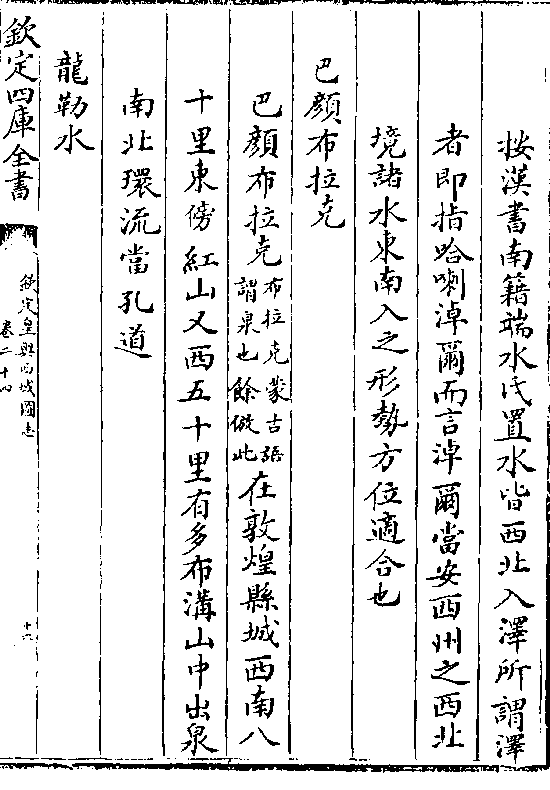 按漢書南籍端水氐置水皆西北入澤所謂澤
者即指哈喇淖爾而言淖爾當安西州之西北
境諸水東南入之形勢方位適合也
巴顔布拉克
巴顔布拉克布拉克蒙古語謂泉也餘倣此在敦煌縣城西南八
十里東傍紅山又西五十里有多布溝山中出泉
南北環流當孔道
龍勒水
欽定四庫全書
欽定皇輿西域圖志
卷二十四